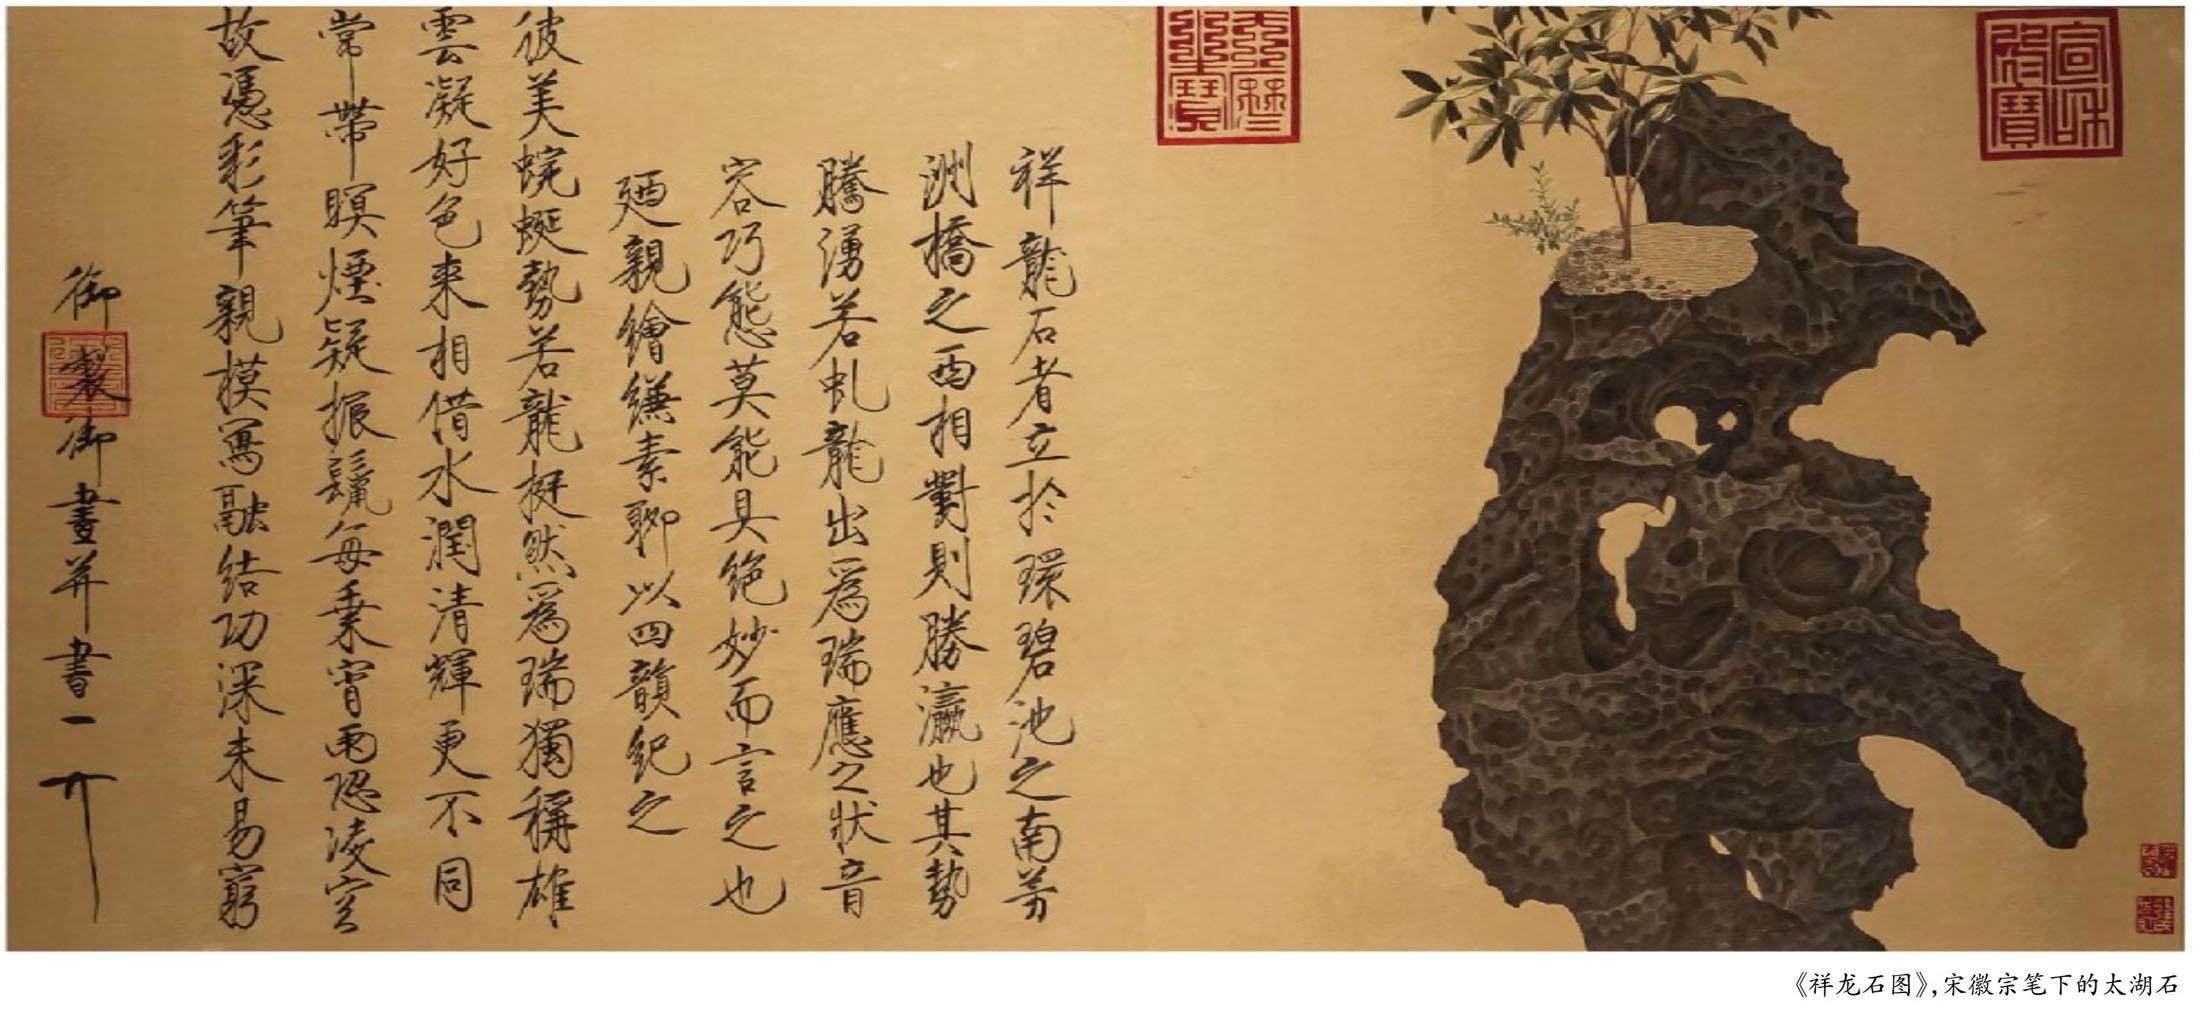 祥龍石者立於環碧池之南芳
洲橋之西相對則勝瀛也其勢
騰湧若虬龍出爲瑞應之狀奇
容巧態莫能具絕妙而言之也
廼親繪縑素聊以四韻紀之
彼美蜿蜒勢若龍挺然爲瑞獨稱雄
雲凝好色来相借水潤清輝更不同
常帶暝煙疑振鬣每乘宵雨恐凌空
故憑彩筆親模寫融結功深未易窮
御製御畫并書
《祥龙石图》,宋徽宗笔下的太湖石